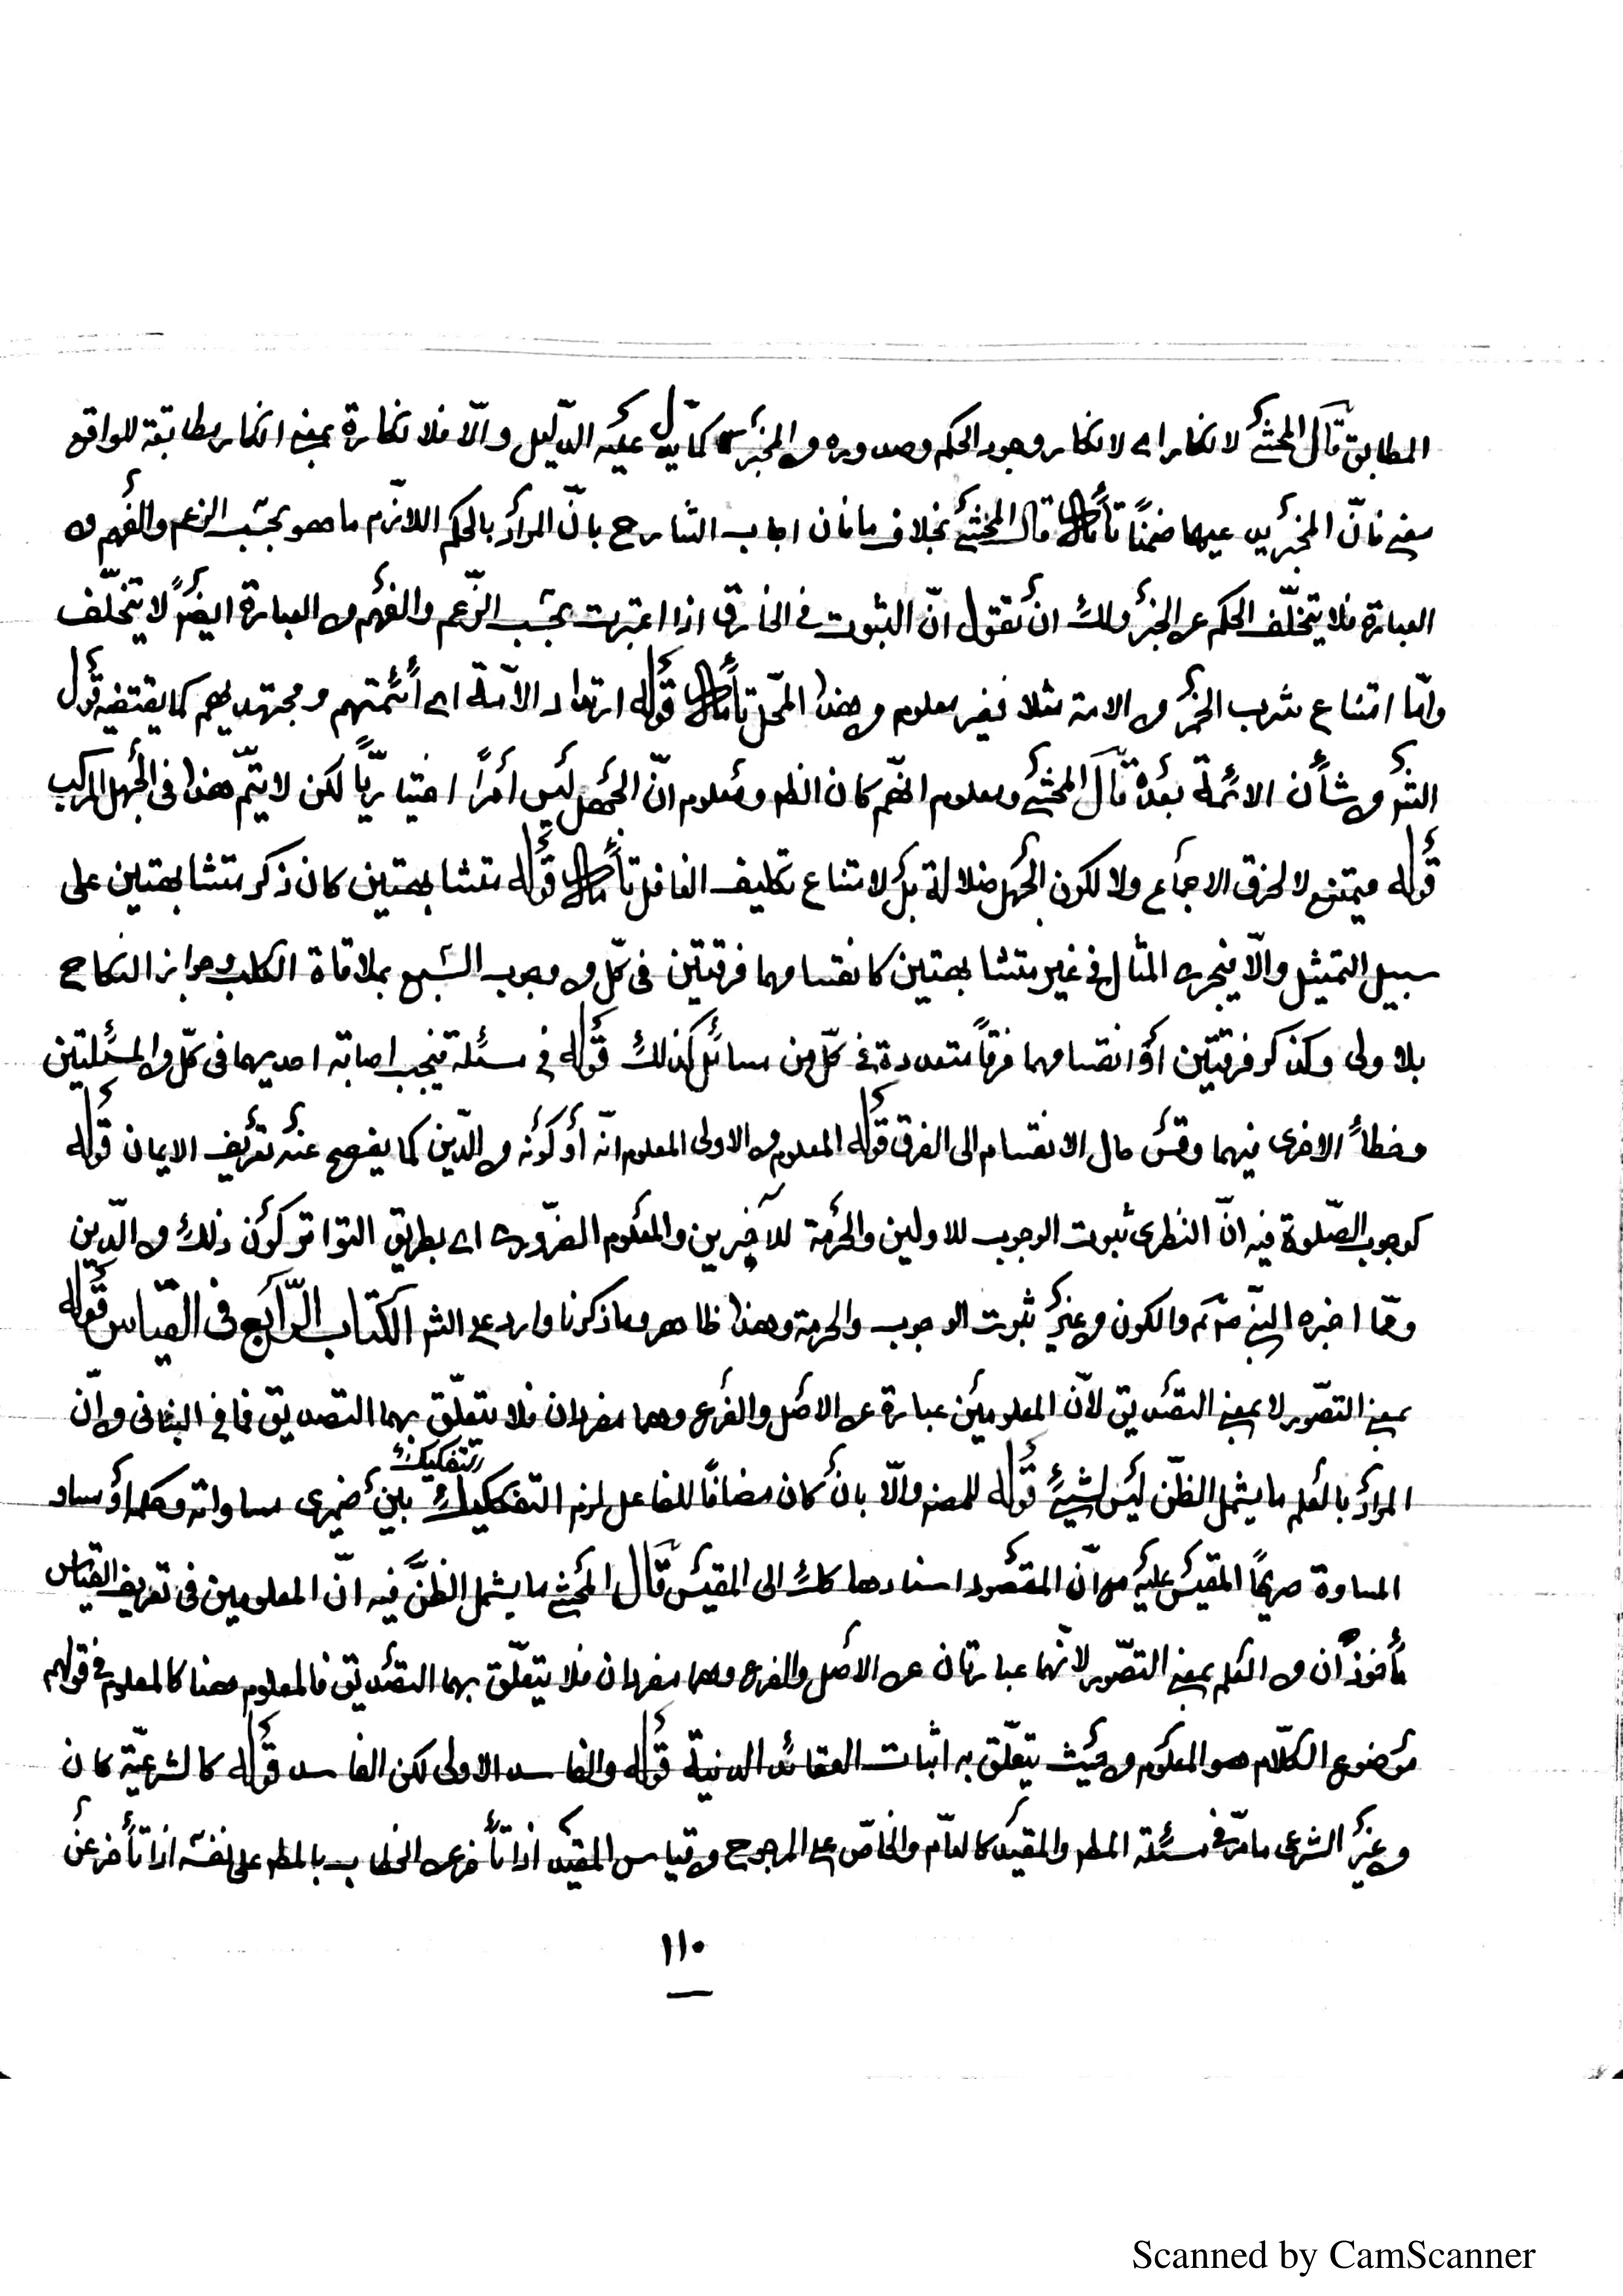 المطابق قال المحشي لانكار اي لا نكار وجود الحكم وصدوره من المخبر كما يدلّ عليه الدّليل والّا فلا نكارة بمعنى انكار مطابقته للواقع
معنى فانّ المخبرين عيهما ضمنًا تأمّل قال المحشي بخلاف ما فان اجاب الشارح بانّ المراد بالحكم اللازم ما هو بحسب الزعم والفهم من
العبارة فلا يتخلّف الحكم عن الخبر ولك ان تقول انّ الثبوت في الخارق اذا اعتبرت بحسب الزّعم والفهم من العبارة ايضًا لا يتخلّف
وامّا امتناع شرب الخمر من الامة مثلا فغير معلوم من هذا المحلّ تأمّل قوله ارتداد الامّة اي أئمتهم ومجتهديهم كما يقتضيه قول
الش من شأن الائمة بعده قال المحشي ومعلوم انّهم كان الظ ومعلوم انّ الجهل ليس أمرًا اختياريًّا لكن لا يتمّ هذا في الجهل المركب
قوله فيمتنع لا لخرق الاجماع ولا لكون الجهل ضلالة بل لامتناع تكليف الغافل تأمّل قوله متشابهتين كان ذكر متشابهتين على
سبيل التمثيل والّا فيجري المثال في غير متشابهتين كانقسامهما فرقتين في كلّ من وجوب السّبع بملاقاة الكلب وجواز النكاح
بلا ولى وكذ كر فرقتين أو انقسامهما فرقًا متعددة في كلّ من مسائل كذلك قوله في مسئلة فيجب اصابة احديهما في كلّ من المسئلتين
وخطأ الاخرى فيهما وقس حال الانقسام الى الفرق قوله المعلوم من الاولى المعلوم انّه أو كونه من الدّين كما يفصح عنه تعريف الايمان قوله
كوجوب الصّلوة فيه انّ النظرى ثبوت الوجوب للاولين والحرمة للآخرين والمعلوم الضّروري اي بطريق التواتر كون ذلك من الدّين
وممّا اخبره النبي صم والكون من غير ثبوت الوجوب والحرمة وهذا ظاهر وما ذكرنا وارد على الش الكتاب الرّابع في القياس قوله
بمعنى التصّور لا بمعنى التصديق لأنّ المعلومين عبارة عن الاصل والفرع وهما مفردان فلا يتعلّق بهما التصديق فما في البناني من انّ
المراد بالعلم ما يشمل الظنّ ليس بشيئ قوله للمصنف والّا بان كان مضافًا للفاعل لزم التفكيك بين ضميرى مساواته وحكمه أو مساو
تفكيك
المساوة صريحًا المقيس عليه مع انّ المقصود اسنادها كلك الى المقيس قال المحشي ما يشمل الظنّ فيه انّ المعلومين في تعريف القياس
مأخوذان من العلم بمعنى التصّور لانّهما عبارتان عن الاصل والفرع وهما مفردان فلا يتعلّق بهما التصديق فالمعلوم هنا كالمعلوم في قولهم
موضوع الكلام هو المعلوم من حيث يتعلّق به اثبات العقائد الدينية قوله والفاسد الاولى لكن الفاسد قوله كالشرعيّة كان
من غير الشرعى ما مرّ في مسئلة المط والمقيد كالعامّ والخاصّ على المرجوح من قياس المقيد اذا تأخر عن الخطاب بالمط على نفسه اذا تأخر عن
١١٠
Scanned by CamScanner